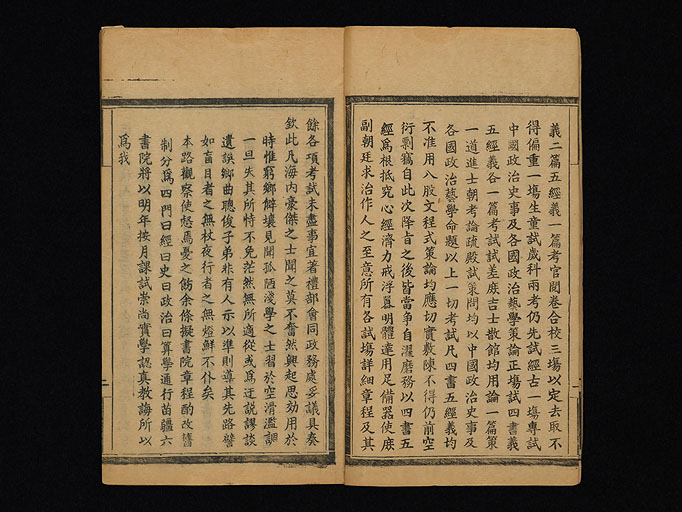 義二篇五經義一篇考官閱卷合校三塲以定去取不
得偏重一塲生童試歲科兩考仍先試經古一塲專試
中國政治史事及各國政治藝學策論正塲試四書義
五經義各一篇考試試差庶吉士散館均用論一篇策
一道進士朝考論疏殿試策問均以中國政治史事及
各國政治藝學命題以上一切考試凡四書五經義均
不准用八股文程式策論均應切實敷陳不得仍前空
衍剽竊自此次降旨之後皆當爭自濯磨務以四書五
經爲根抵究心經濟力戒浮囂明體達用足備器使庶
副朝廷求治作人之至意所有各試塲詳細章程及其
餘各項考試未盡事宜著禮部會同政務處妥議具奏
欽此凡海內豪傑之士聞之莫不奮然興起思効用於
時惟窮鄉僻壤見聞孤陋淺學之士習於空滑濫調
一旦失其所恃不免茫然無所適從或爲迂説謬談
遺誤鄉曲聰俊子弟非有人示以準則導其先路譬
如盲目者之無杖夜行者之無燈鮮不仆矣
本路觀察使怒焉憂之飭余條擬書院章程酌改舊
制分爲四門曰經曰史曰政治曰算學通行苗疆六
書院將以明年按月課試崇尚實學認真教誨所以
爲我
二